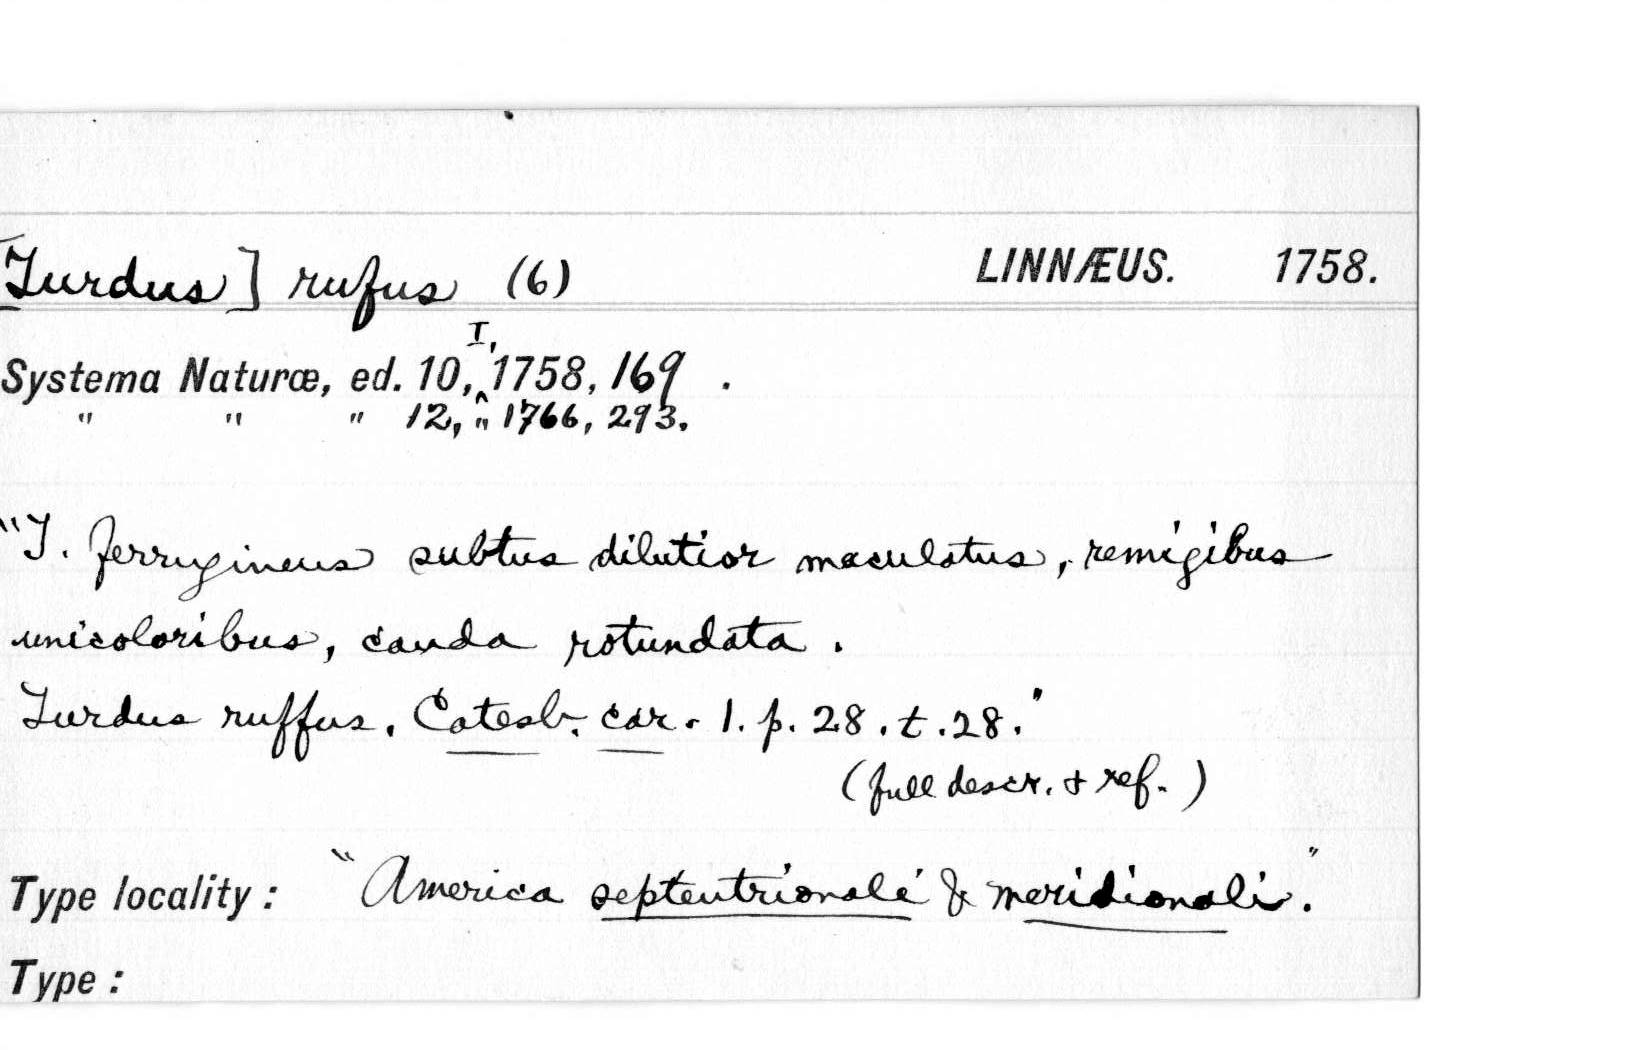 [Turdus] rufus (6) LINNÆUS. 1758.
Systema Naturæ, ed. 10, I, 1758, 169 .
" " " 12, " 1766, 293.
"T. ferrugineus subtus dilutior maculatus, remigibus
unicoloribus, cauda rotundata .
Turdus ruffus. Catesb. car. 1. p. 28. t. 28."
(full descr. & ref.)
Type locality : "America septentrionali & meridionali."
Type :